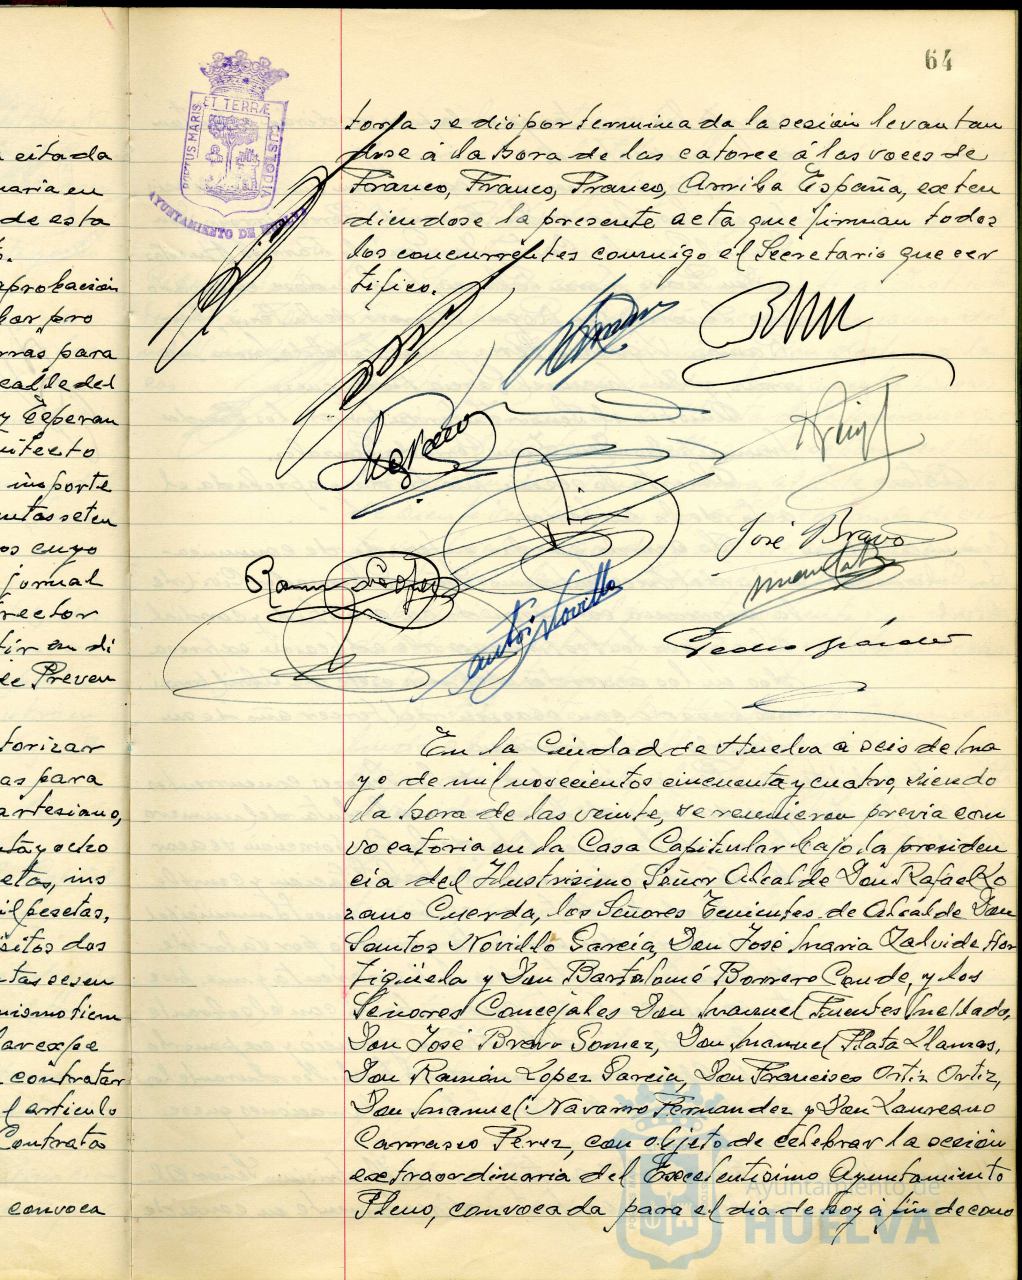 64
PORTUS MARIS
ET TERRÆ
CUSTODIA
AYUNTAMIENTO DE HUELVA
citada
naria en
de esta
aprobación
lar pro
rras para
calde del
y Esperan
uitecto
importe
ntas seten
os cuyo
jornal
rector
tir en di
de Preven
torizar
as para
artesiano,
nta y ocho
etas, ins
il pesetas,
sitos dos
ntas sesen
nismo tiem
lar expe
contratar
l artículo
Contrata
convoca
toria se dió por terminada la sesión levantan
dose á la hora de las catorce á las voces de
Franco, Franco, Franco, Arriba España, exten
diendose la presente acta que firman todos
los concurrentes conmigo el Secretario que cer
tifico.
José Bravo
Ramón López
Antº Novillo
Pedro
En la Ciudad de Huelva á seis de Ma
yo de mil novecientos cincuenta y cuatro, siendo
la hora de las veinte, se reunieron previa con
vocatoria en la Casa Capitular bajo la presiden
cia del Ilustrísimo Señor Alcalde Don Rafael Lo
zano Cuerda, los Señores Tenientes de Alcalde Don
Santos Novillo García, Don José Maria Zalvide Hor
tigüela y Don Bartolomé Borrero Conde, y los
Señores Concejales Don Manuel Fuentes Mellado,
Don José Bravo Gomez, Don Manuel Plata Llamas,
Don Ramón López García, Don Francisco Ortiz Ortiz,
Don Manuel Navarro Fernandez y Don Laureano
Carrasco Pérez, con objeto de celebrar la sesión
extraordinaria del Excelentísimo Ayuntamiento
Pleno, convocada para el día de hoy á fin de cono
Ayuntamiento de
HUELVA